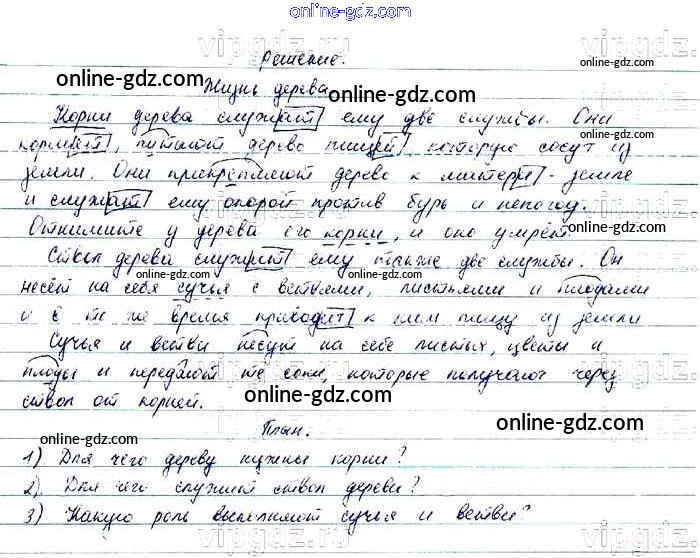 online-gdz.com
Решение.
online-gdz.com
Жизнь дерева
online-gdz.com
Корни дерева служат ему две службы. Они
кормят, питают дерево пищей, которую сосут из
земли. Они прикрепляют дерево к матери-земле
и служат ему опорой против бурь и непогод.
Отнимите у дерева его корни, и оно умрёт.
online-gdz.com
Ствол дерева служит ему также две службы. Он
online-gdz.com
online-gdz.com
несёт на себя сучья с ветвями, листьями и плодами
и в то же время приводит к ним пищу из земли
Сучья и ветви несут на себе листья, цветы и
плоды и передают те соки, которые получают через
ствол от корней.
online-gdz.com
План.
online-gdz.com
1) Для чего дереву нужны корни?
online-gdz.com
2) Для чего служит ствол дерева?
3) Какую роль выполняют сучья и ветви?
online-gdz.com